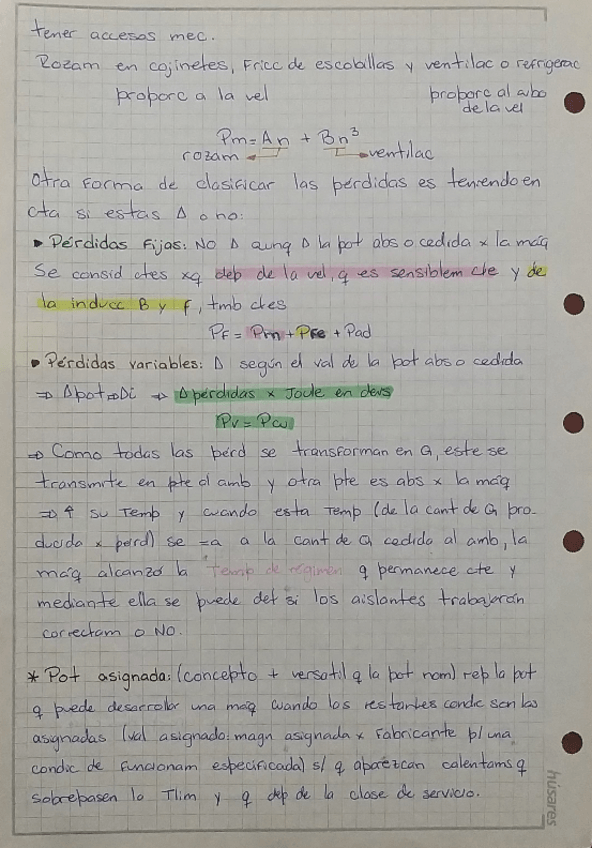 tener accesos mec.
Rozam en cojinetes, Fricc de escobillas y ventilac o refrigerac
proporc a la vel proporc al cubo
de la vel
Pm = An + Bn³
rozam ventilac
Otra forma de clasificar las pérdidas es teniendo en
cta si estas Δ o no:
▸ Pérdidas Fijas: NO Δ aunq Δ la pot abs o cedida x la máq
Se consid ctes xq dep de la vel, q es sensiblem cte y de
la inducc B y f, tmb ctes
PF = Pm + PFe + Pad
• Pérdidas variables: Δ según el val de la pot abs o cedida
⇒ Δpot ⇒ Di ⇒ Δ pérdidas x Joule en devs
PV = Pcu
⇒ Como todas las pérd se transforman en Q, este se
transmite en pte al amb y otra pte es abs x la máq
⇒ ↑ su Temp y cuando esta Temp (de la cant de Q pro-
ducida x perd) se =a a la cant de Q cedido al amb, la
máq alcanzó la Temp de régimen q permanece cte y
mediante ella se puede det si los aislantes trabajarán
correctam o NO.
* Pot asignada: (concepto + versatil q la pot nom) rep la pot
q puede desarrollar una máq cuando los restantes condic son las
asignadas (val asignado: magn asignada x fabricante p/ una
condic de funcionam especificada) s/ q aparezcan calentams q
sobrepasen la Tlim y q dep de la clase de servicio.
húsares